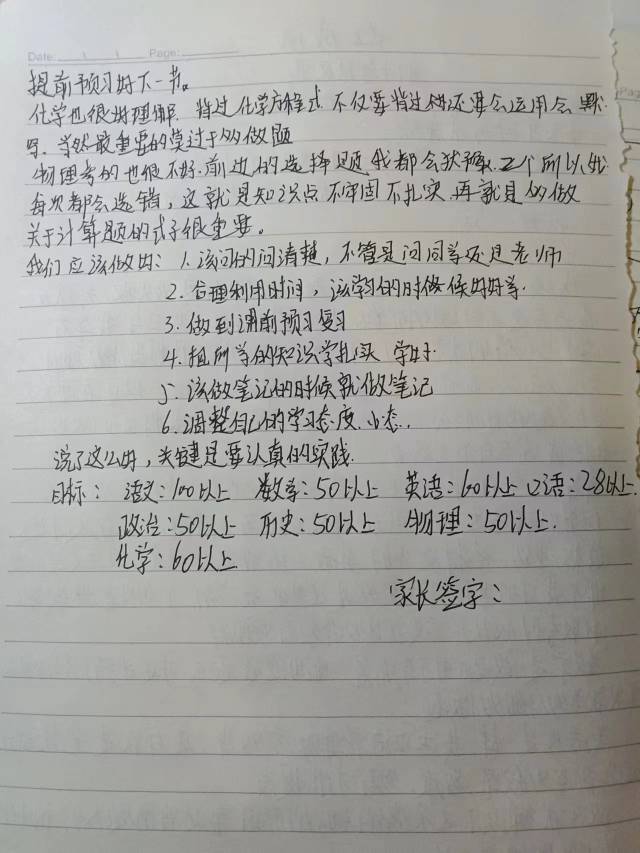 Date:    /    /    Page:
提前预习好下一节。
化学也很好理解. 背过化学方程式 不仅要背过的还要会运用会默
写. 当然最重要的莫过于多做题
物理考的也很不好.前边的选择题我都会犹豫 2个所以我
每次都会选错，这就是知识点不牢固不扎实.再就是多做
关于计算题的式子很重要。
我们应该做的： 1. 该问的问清楚，不管是问同学还是老师
2. 合理利用时间，该学的时候好好学.
3. 做到课前预习复习
4. 把所学的知识学扎实 学好
5. 该做笔记的时候就做笔记
6. 调整自己的学习态度.心态.
说了这么多，关键是要认真的实践.
目标： 语文：100以上 数学：50以上 英语：60以上 口语：28以上.
政治：50以上 历史：50以上 物理：50以上.
化学：60以上
家长签字：